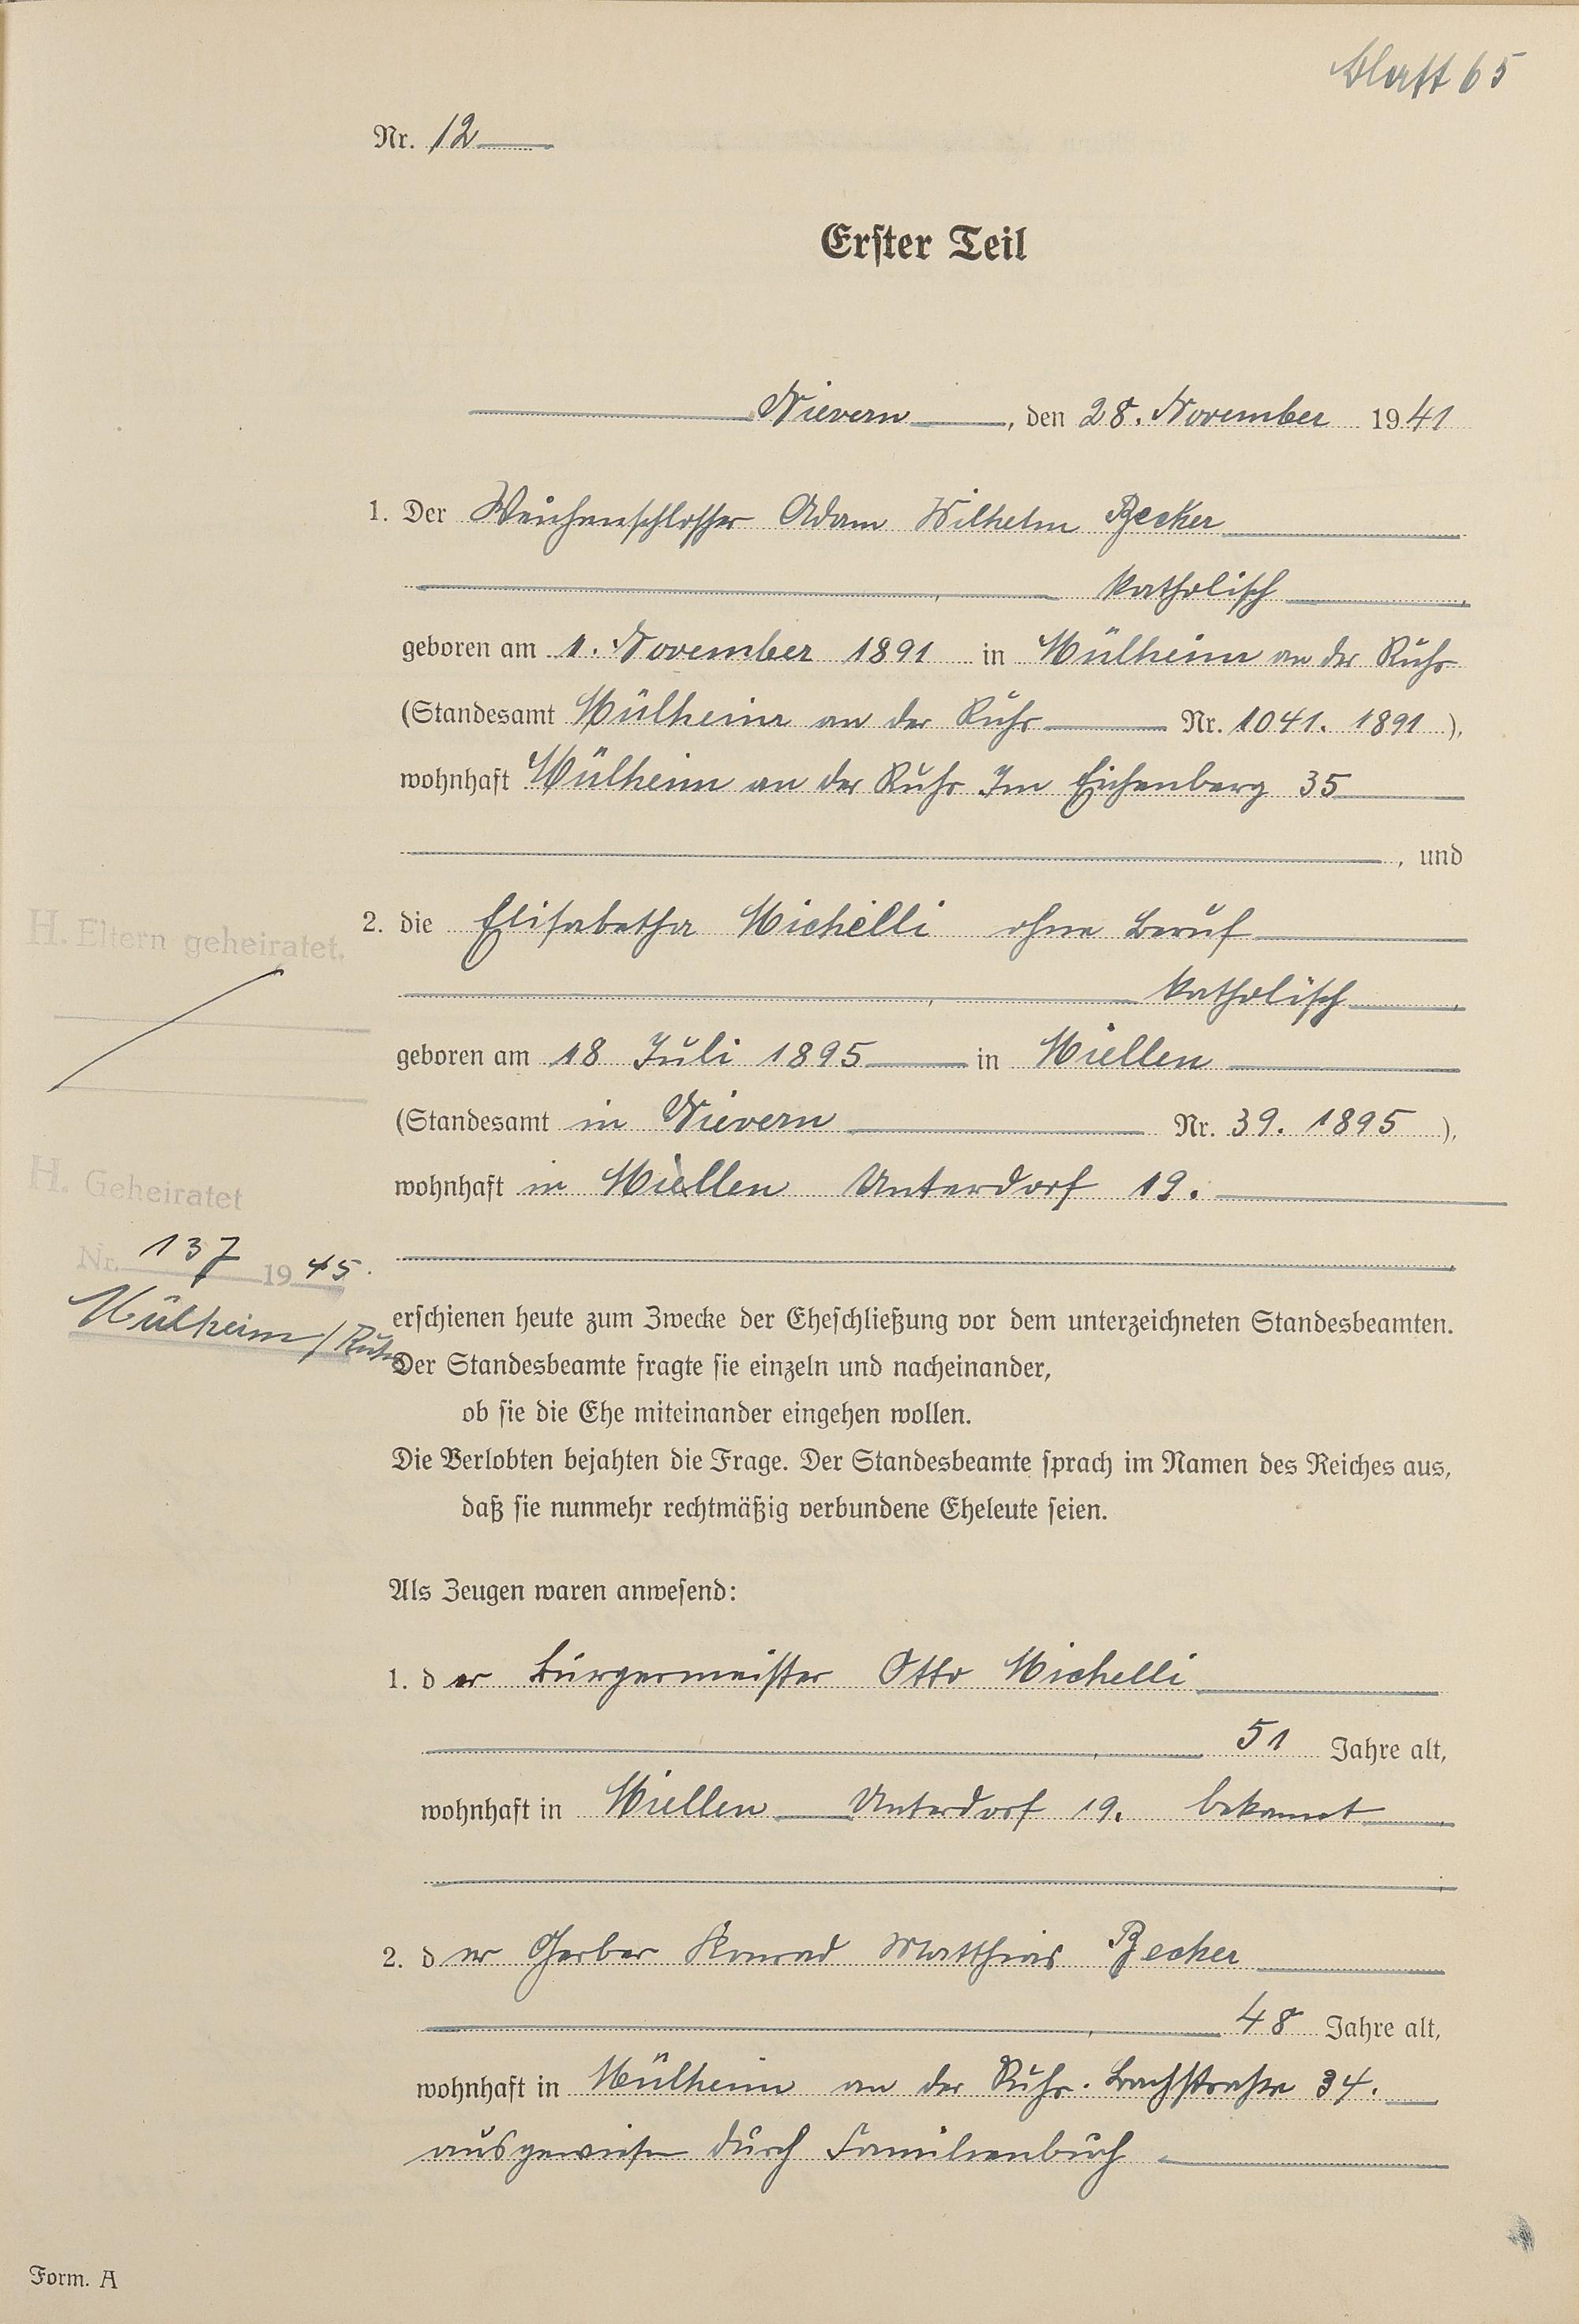 Blatt 65
Nr. 12
Erster Teil
Nievern, den 28. November 1941
1. Der Weichenschlosser Adam Wilhelm Becker
katholisch
geboren am 1. November 1891 in Mülheim an der Ruhr
(Standesamt Mülheim an der Ruhr Nr. 1041. 1891),
wohnhaft Mülheim an der Ruhr Im Eichenberg 35
, und
2. die Elisabetha Michelli ohne Beruf
katholisch
geboren am 18 Juli 1895 in Miellen
(Standesamt in Nievern Nr. 39. 1895),
wohnhaft in Miellen Unterdorf 19.
H. Eltern geheiratet.
H. Geheiratet
Nr. 137 1945.
Mülheim/Ruhr
erschienen heute zum Zwecke der Eheschließung vor dem unterzeichneten Standesbeamten.
Der Standesbeamte fragte sie einzeln und nacheinander,
ob sie die Ehe miteinander eingehen wollen.
Die Verlobten bejahten die Frage. Der Standesbeamte sprach im Namen des Reiches aus,
daß sie nunmehr rechtmäßig verbundene Eheleute seien.
Als Zeugen waren anwesend:
1. der Bürgermeister Otto Michelli
51 Jahre alt,
wohnhaft in Miellen Unterdorf 19. bekannt
2. der Gerber Konrad Matthias Becker
48 Jahre alt,
wohnhaft in Mülheim an der Ruhr. Bachstraße 34.
ausgewiesen durch Familienbuch
Form. A